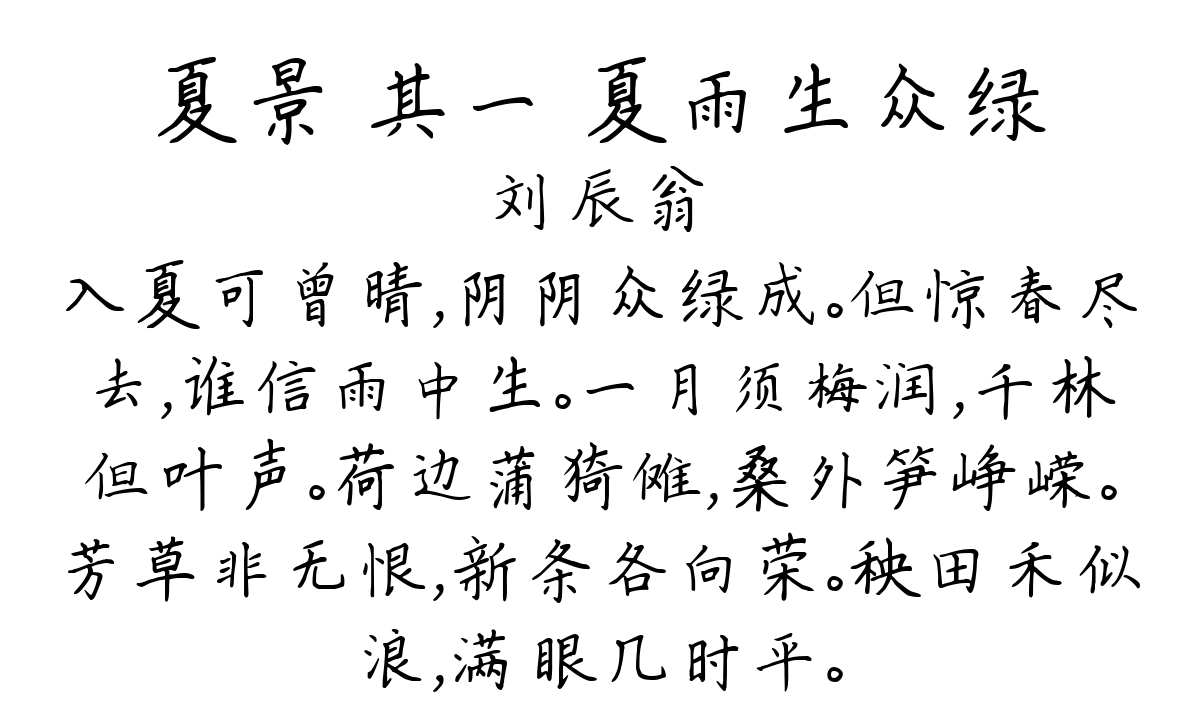 夏景 其一 夏雨生众绿
刘辰翁
入夏可曾晴,阴阴众绿成。但惊春尽
去,谁信雨中生。一月须梅润,千林
但叶声。荷边蒲猗傩,桑外笋峥嵘。
芳草非无恨,新条各向荣。秧田禾似
浪,满眼几时平。